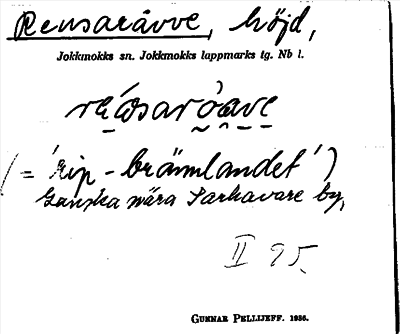 Rensaråvve, höjd,
Jokkmokks sn. Jokkmokks lappmarks tg. Nb l.
(= 'rip-brännlandet')
Ganska nära Parkavare by.
II 95.
GUNNAR PELLIJEFF. 1936.